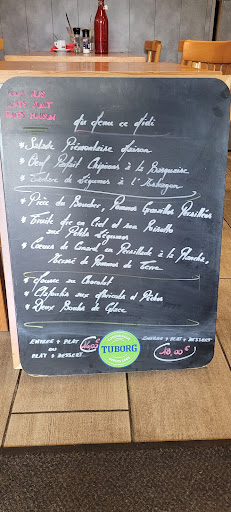 Au Menu ce Midi
* Salade Piémontaise Maison
* Oeuf Parfait Chipirons à la Basquaise
* de Légumes à l'
* Pièce du Boucher, Pommes Grenailles Persillées
* Truite
sur Petits Légumes
* Coeurs de Canard en Persillade à la Planche,
Écrasé de Pommes de Terre
* Mousse au Chocolat
* Clafoutis aux Abricots et Pêches
* Deux Boules de Glace
ENTRÉE + PLAT
OU
PLAT + DESSERT
ENTRÉE + PLAT + DESSERT
18,00 €
TUBORG